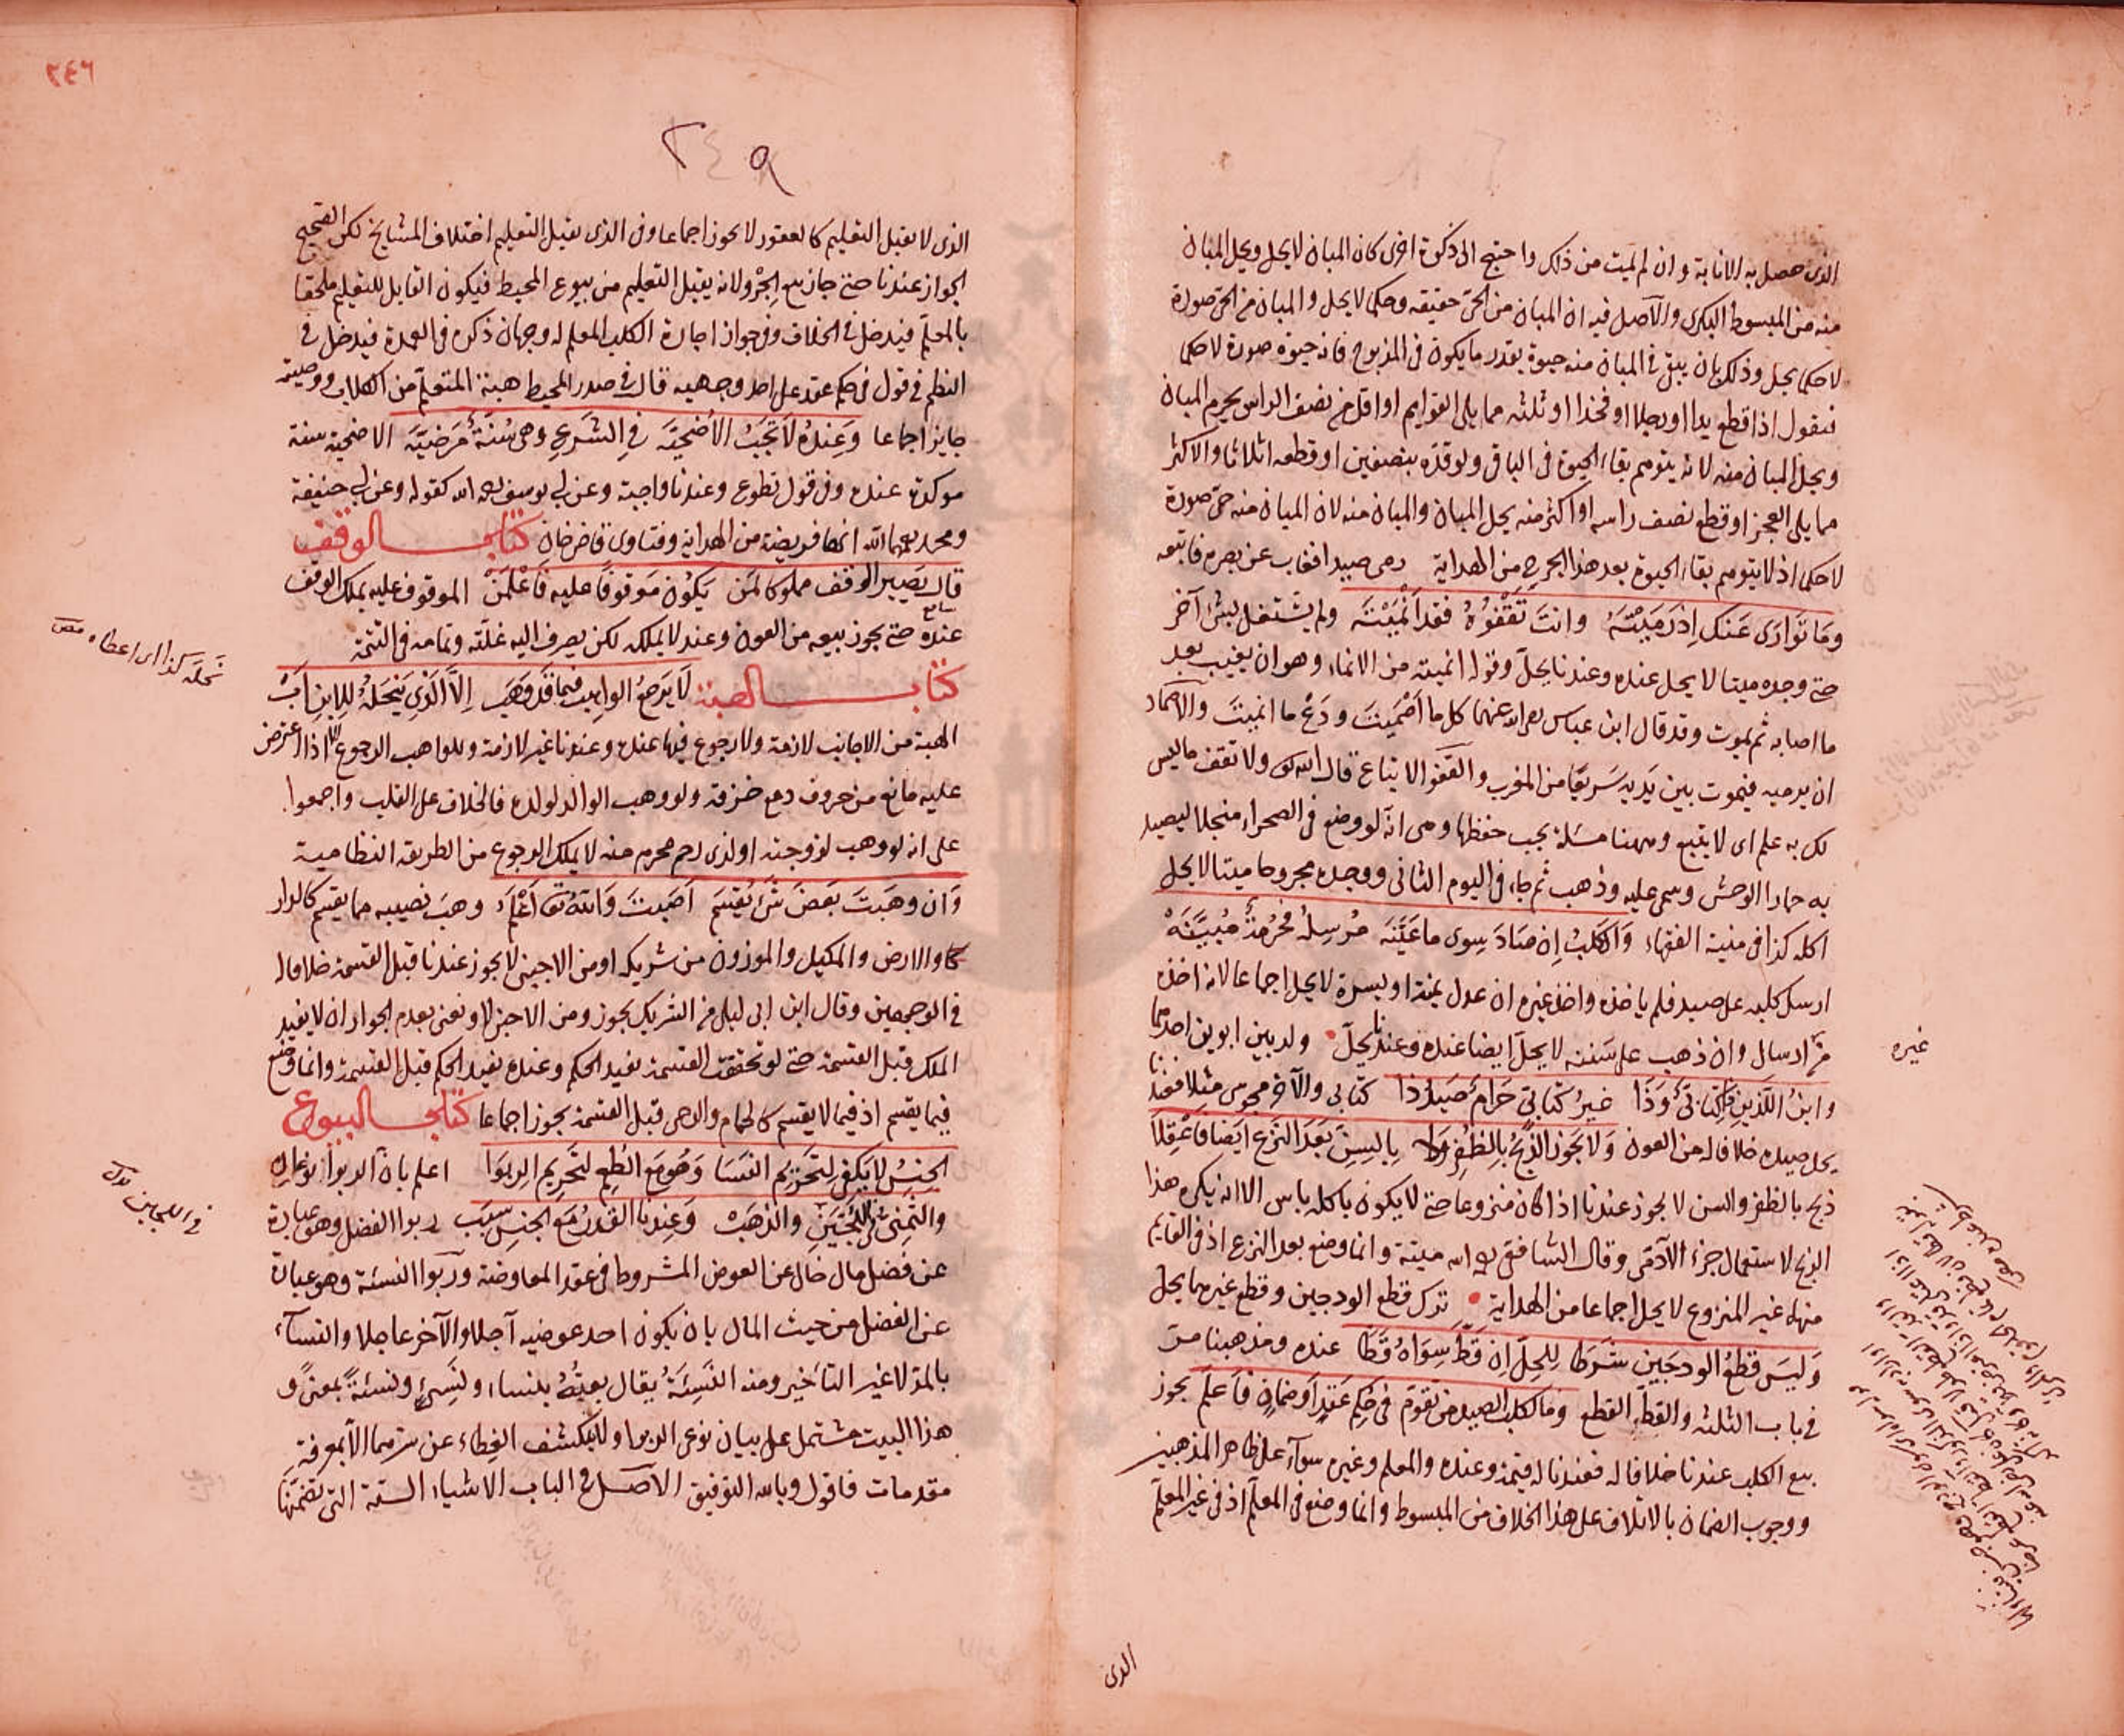 الذى حصل به الابانة وان لم يمت من ذلك واحتيج الى ذكوة اخرى كان المبان لا يحل ويحل المبان
منه من المبسوط البكرى والاصل فيه ان المبان من الحى حقيقة وحكما لا يحل والمبان من الحى صورة
لا حكما يحل وذلك بان يبقى فى المبان منه حيوة بقدر ما يكون فى المذبوح فانه حيوة صورة لا حكما
فنقول اذا قطع يدا او رجلا او فخذا او ثلثه مما يلى القوايم او اقل من نصف الراس يحرم المبان
ويحل المبان منه لانه يتوهم بقاء الحيوة فى الباقى ولو قده بنصفين او قطعه اثلاثا والاكثر
مما يلى العجز او قطع نصف راسه او اكثر منه يحل المبان والمبان منه لان المبان منه حى صورة
لا حكما اذ لا يتوهم بقاء الحيوة بعد هذا الجرح من الهداية رمى صيدا فغاب عن بصره فاتبعه
وما توارى عنك اذ رميته وانت تقفوه فقد انميته ولم يشتغل بشئ آخر
حتى وجده ميتا لا يحل عنده وعندنا يحل وقوله انميته من الانماء وهو ان يغيب بعد
ما اصابه ثم يموت وقد قال ابن عباس رضى الله عنهما كل ما اصميت ودع ما انميت والاصماء
ان يرميه فيموت بين يديه سريعا من المغرب والقفو الاتباع قال الله تعالى ولا تقف ما ليس
لك به علم اى لا يتبع وههنا مسئلة يجب حفظها وهى انه لو وضع فى الصحراء منجلا ليصيد
به حمار الوحش وسمى عليه وذهب ثم جاء فى اليوم الثانى ووجده مجروحا ميتا لا يحل
اكله كذا فى منية الفقهاء والكلب ان صاد سوى ما عينه مرسله محرمة مبينه
ارسل كلبه على صيد فلم ياخذه واخذ غيره ان عدل يمنة او يسرة لا يحل اجماعا لانه اخذه
من ارسال وان ذهب على سننه لا يحل ايضا عنده وعندنا يحل ولد بين ابوين احدهما
وابن اللذين ذا كتابى وذا غير كتابى حرام صيد ذا كتابى والآخر مجوسى مثلا فعندنا
يحل صيده خلافا له من العون ولا يجوز الذبح بالظفر ولا بالسن بعد النزع ايضا فاعقلا
ذبح بالظفر والسن لا يجوز عندنا اذا كان منزوعا حتى لا يكون باكله باس الا انه يكره هذا
الذبح لاستعمال جزء الآدمى وقال الشافعى رحمه الله ميتة وانما وضع بعد النزع اذ فى القايم
منها غير المنزوع لا يحل اجماعا من الهداية ترك قطع الودجين وقطع غيرهما يحل
وليس قطع الودجين شرطا للحل ان قط سواه قطا عنده ومذهبنا مر
فى باب الثلثة والقط القطع وما لكلب الصيد من تقوم فى حكم عقد او ضمان فاعلم يجوز
بيع الكلب عندنا خلافا له فعندنا له قيمة وعنده والمعلم وغيره سوآء على ظاهر المذهبين
ووجوب الضمان بالاتلاف على هذا الخلاف من المبسوط وانما وضع فى المعلم اذ فى غير المعلم
غيره
الذى
٢٤٦
٢٤٩
الذى لا يقبل التعليم كالعقور لا يجوز اجماعا وفى الذى يقبل التعليم اختلاف المشايخ لكن الصحيح
الجواز عندنا حتى جاز بيع الجرو لانه يقبل التعليم من بيوع المحيط فيكون القابل للتعليم ملحقا
بالمعلم فيدخل فى الخلاف وفى جواز اجارة الكلب المعلم له وجهان ذكره فى العمدة فيدخل فى
النظم فى قول فى حكم عقد على احد وجهيه قال فى صدر المحيط هبة المتعلم من الكلاب ووصيته
جايز اجماعا وعنده لا تجب الاضحيه فى الشرع وهى سنة مرضيه الاضحية سنة
موكدة عنده وفى قول تطوع وعندنا واجبة وعن ابى يوسف رحمه الله كقوله وعن ابى حنيفة
ومحمد رحمهما الله انها فريضة من الهداية وفتاوى قاضى خان كتاب الوقف
قال يصير الوقف مملوكا لمن يكون موقوفا عليه فاعلمن الموقوف عليه يملك الوقف
عنده حتى يجوز بيعه من العون وعندنا لا يملكه لكن يصرف اليه غلته وتمامه فى التتمة
كتاب الهبة لا يرجع الواهب فيما قد وهب الا الذى ينحله للابن اب
الهبة من الاجانب لازمة ولا رجوع فيها عنده وعندنا غير لازمة وللواهب الرجوع الا اذا اعترض
عليه مانع من حروف دمع خزقه ولو وهب الوالد لولده فالخلاف على القلب واجمعوا
على انه لو وهب لزوجته او لذى رحم محرم منه لا يملك الرجوع من الطريقة النظامية
وان وهبت بعض شئ يقتسم اصبت والله تعالى اعلم وهب نصيبه مما يقسم كالدار
والارض والمكيل والموزون من شريكه او من الاجنبى لا يجوز عندنا قبل القسمة خلافا له
فى الوجهين وقال ابن ابى ليلى من الشريك يجوز ومن الاجنبى لا ونعنى بعدم الجواز ان لا يفيد
الملك قبل القسمة حتى لو تحققت القسمة يفيد الحكم وعنده يفيد الحكم قبل القسمة وانما وضع
فيما يقسم اذ فيما لا يقسم كالحمام والرحى قبل القسمة يجوز اجماعا كتاب البيوع
الجنس لا يكفى لتحريم النسا وهو مع الطعم لتحريم الربوا اعلم بان الربوا نوعان
والثمنى فى اللجين والذهب وعندنا القدر مع الجنس سبب ربوا الفضل وهو عبارة
عن فضل مال خال عن العوض المشروط فى عقد المعاوضة وربوا النسئة وهو عبارة
عن الفضل من حيث المال بان يكون احد عوضيه آجلا والآخر عاجلا والنسآء
بالمد لا غير التاخير ومنه النسئة يقال بعته بنساء ونسئ ونسئة بمعنى و
هذا البيت مشتمل على بيان نوعى الربوا ولا ينكشف الغطاء عن سترهما الا بمعرفة
مقدمات فاقول وبالله التوفيق الاصل فى الباب الاشياء الستة التى تضمنها